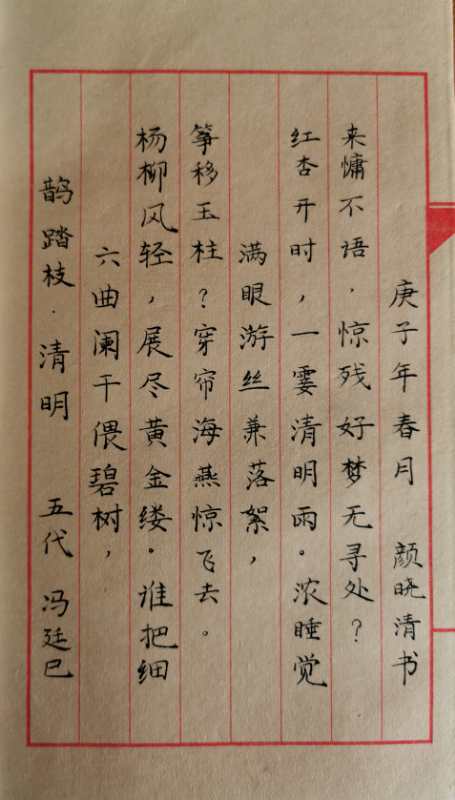 鹊踏枝·清明 五代 冯廷巳
六曲阑干偎碧树，
杨柳风轻，展尽黄金缕。谁把细
筝移玉柱？穿帘海燕惊飞去。
满眼游丝兼落絮，
红杏开时，一霎清明雨。浓睡觉
来慵不语，惊残好梦无寻处？
庚子年春月 颜晓清书